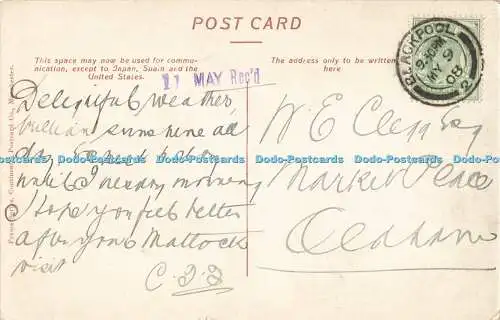 POST CARD
This space may now be used for commu-
nication, except to Japan, Spain and the
United States.
The address only to be written
here
11 MAY Rec'd
BLACKPOOL
MY 9
08
2
Delightful weather,
brilliant sunshine all
day
until Tuesday morning
I hope you feel better
after your Mattock
visit
W E Clegg Esq
Market Place
Oldham
Dodo-Postcards Dodo-Postcards Dodo-Postcards Dodo-Postcards Dodo-Postcards Dodo-Postcards